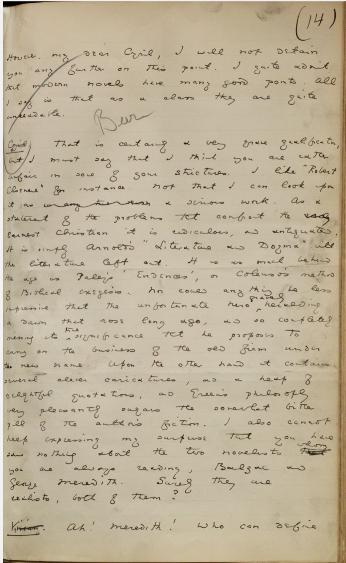 (14)
However, my dear Cyril, I will not detain
you any further on this point. I quite admit
that modern novels have many good points. All
I say is that as a class they are quite
unreadable.
Cyril) That is certainly a very grave qualification,
but I must say that I think you are rather
unfair in some of your strictures. I like "Robert
Elsmere" for instance. Not that I can look upon
it as a serious work. As a
statement of the problems that confront the
earnest Christian it is ridiculous, and antiquated.
It is simply Arnold's "Literature and Dogma" with
the literature left out. It is as much behind
the age as Paley's "Evidences", or Colenso's method
of Biblical exegesis. Nor could anything be less
impressive than the unfortunate hero gravely heralding
a dawn that rose long ago, and so completely
missing its true significance that he proposes to
carry on the business of the old firm under
the new name. Upon the other hand it contains
several clever caricatures, and a heap of
delightful quotations, and Green's philosophy
very pleasantly sugars the somewhat bitter
pill of the author's fiction. I also cannot
help expressing my surprise that you have
said nothing about the two novelists whom
you are always reading, Balzac and
George Meredith. Surely they are
realists, both of them?
Vivian. Ah! Meredith! Who can define